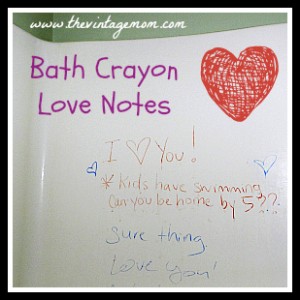 www.thevintagemom.com
Bath Crayon
Love Notes
I ♡ You!
* Kids have swimming
Can you be home by 5??
Sure thing.
Love you!